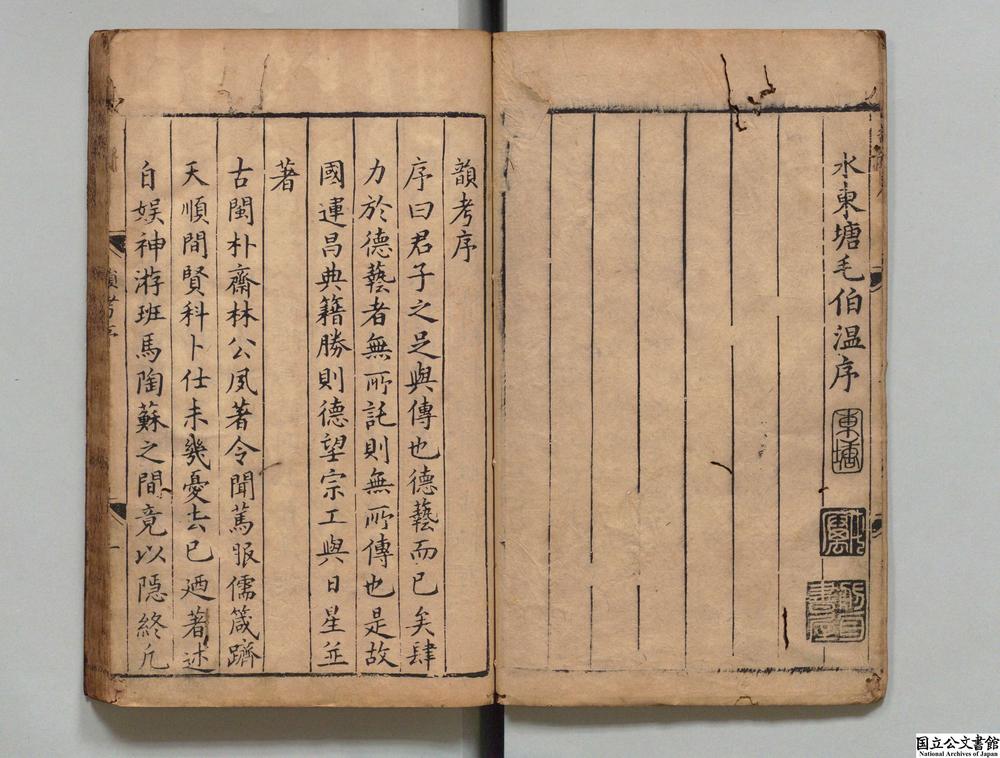 水東塘毛伯温序
東塘
韻考序
序曰君子之足與傳也德藝而已矣肆
力於德藝者無所託則無所傳也是故
國運昌典籍勝則德望宗工與日星並
著
古閩朴齋林公夙著令聞篤服儒箴躋
天順間賢科卜仕未幾憂去已迺著述
自娱神游班馬陶蘇之間竟以隱終凡
韻考序
一
国立公文書館
National Archives of Japan